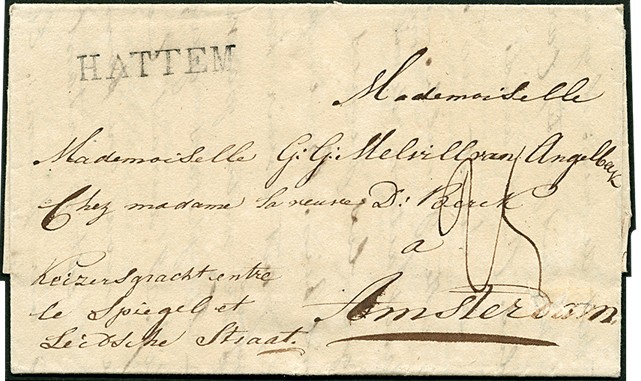 HATTEM
Mademoiselle
Mademoiselle G: G: Melvill van Angelbeek
Chez madame la veuve D: Berck
a
Amsterdam
Keizersgracht entre
le Spiegel et
Leidsche Straat.